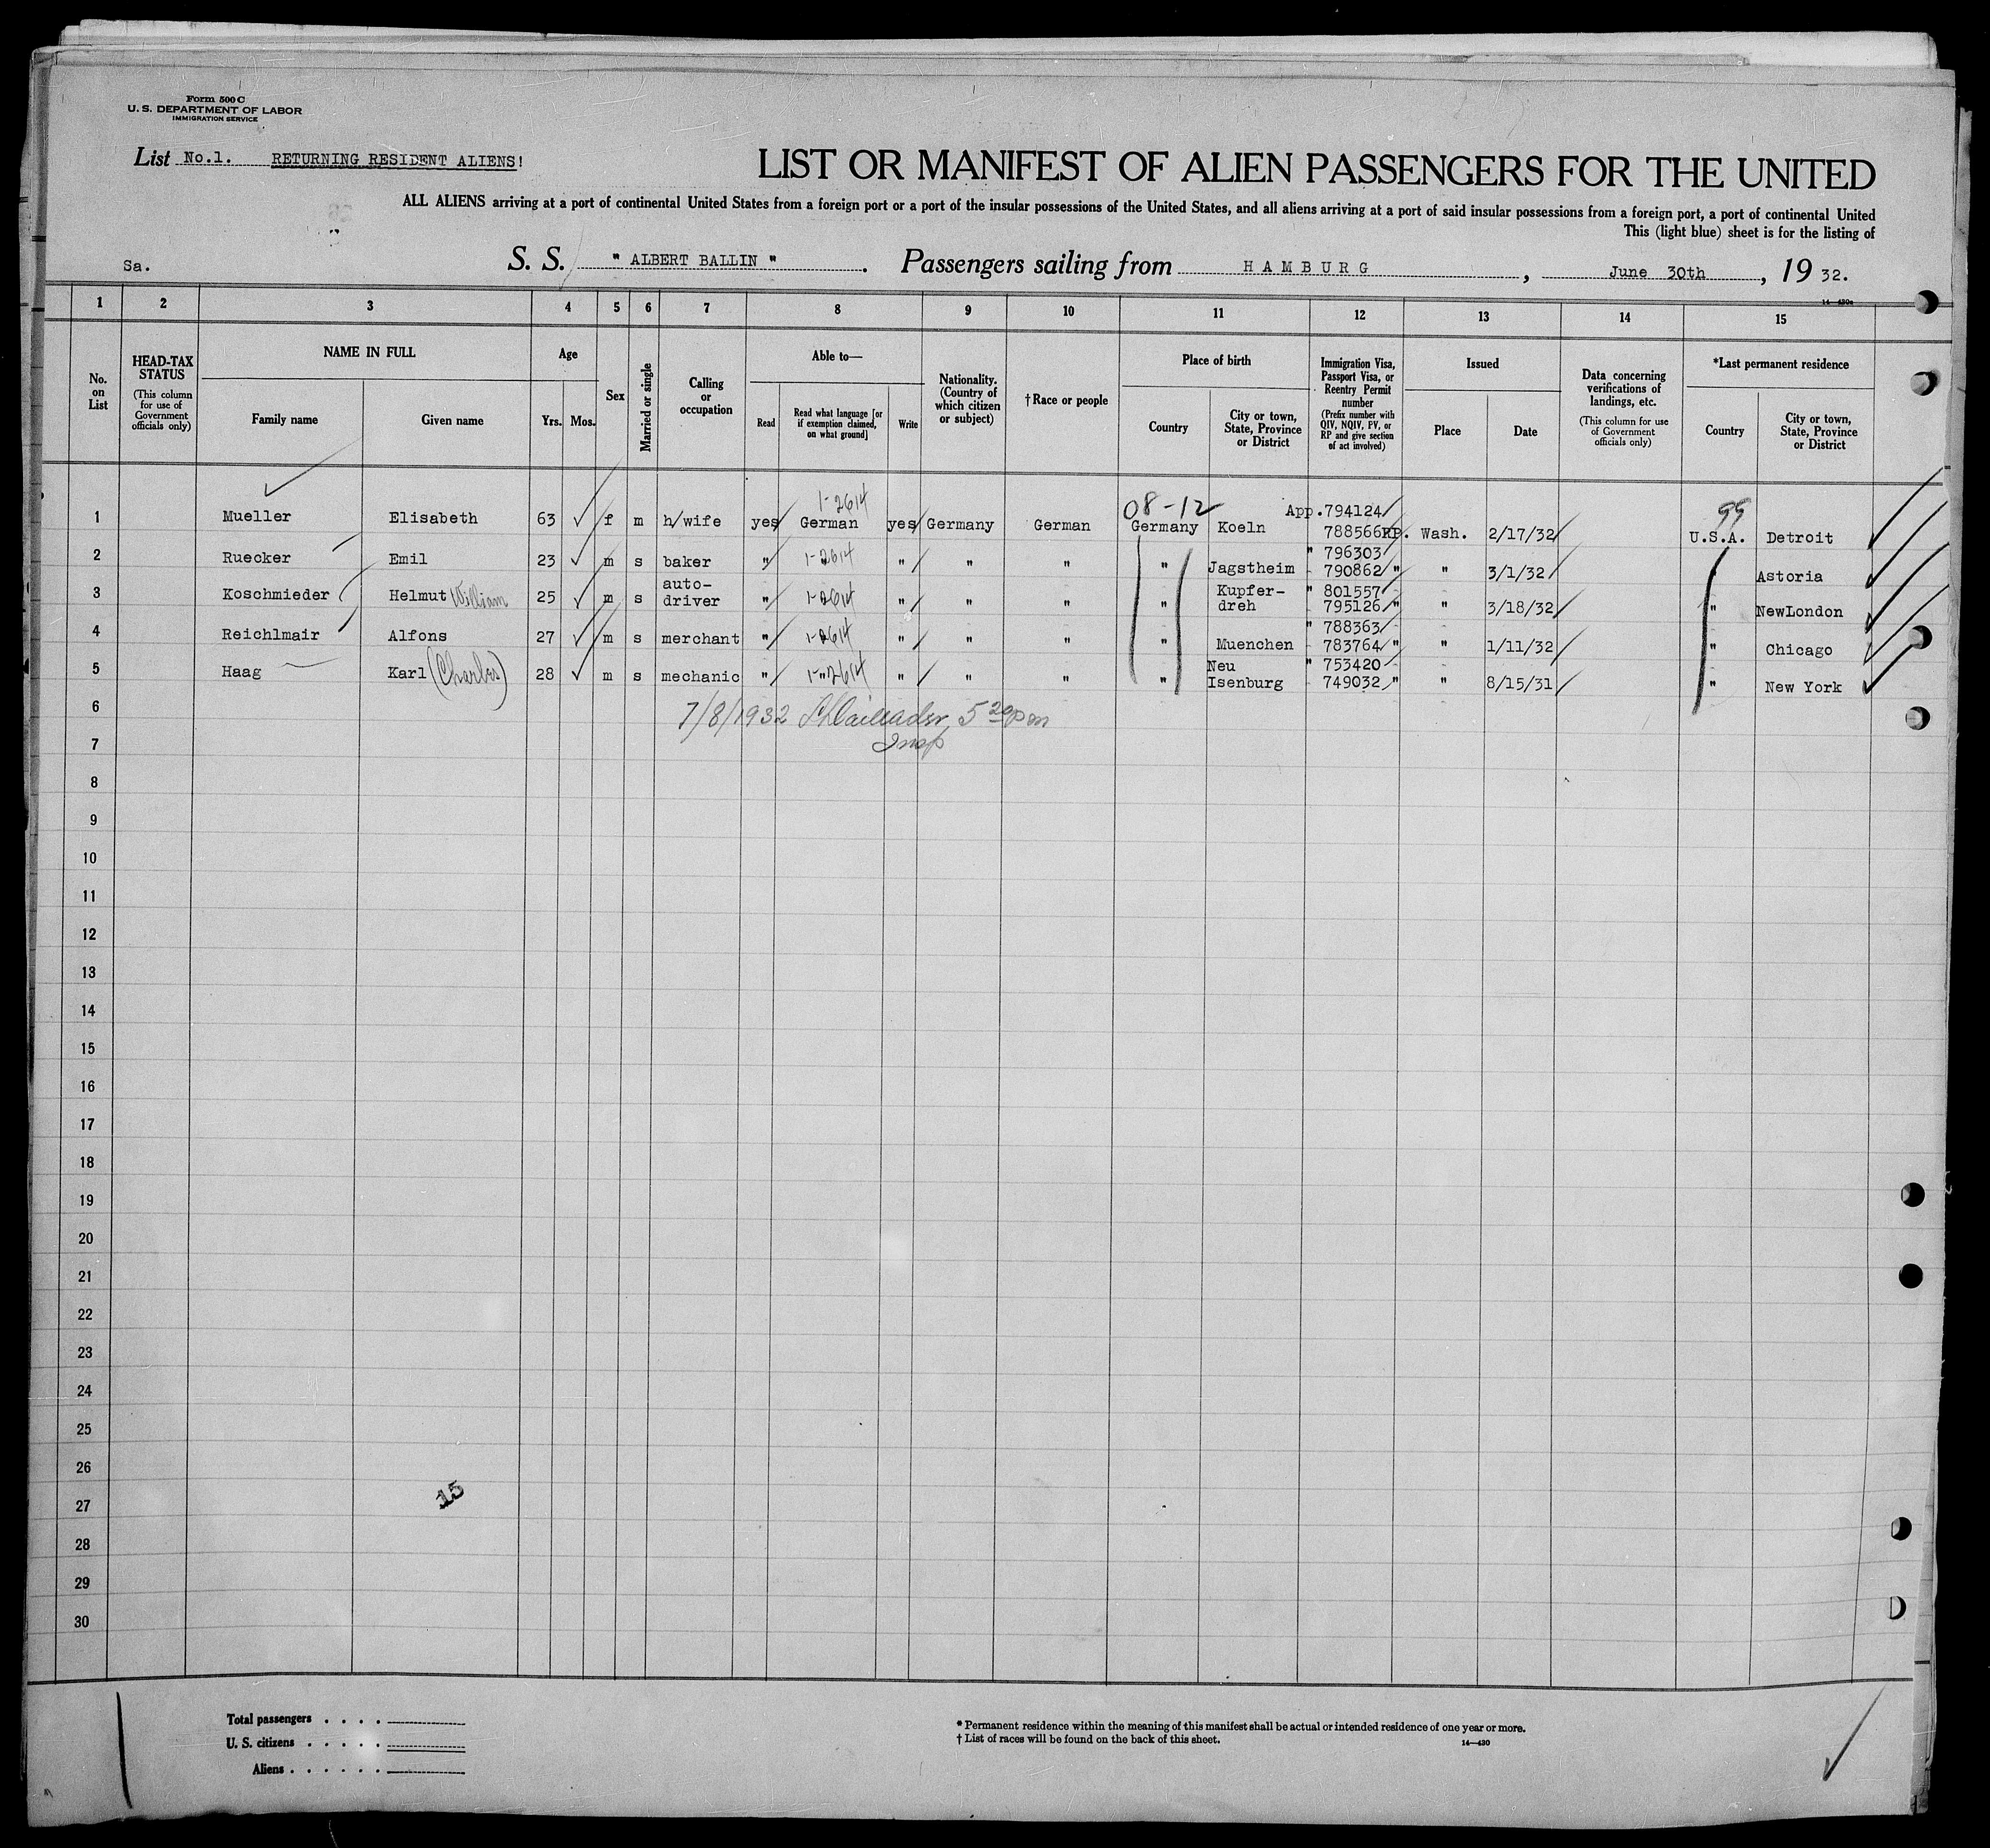 Form 500 C
U. S. DEPARTMENT OF LABOR
IMMIGRATION SERVICE
List No.1. RETURNING RESIDENT ALIENS!
LIST OR MANIFEST OF ALIEN PASSENGERS FOR THE UNITED
ALL ALIENS arriving at a port of continental United States from a foreign port or a port of the insular possessions of the United States, and all aliens arriving at a port of said insular possessions from a foreign port, a port of continental United
This (light blue) sheet is for the listing of
Sa. S. S. " ALBERT BALLIN ". Passengers sailing from HAMBURG, June 30th, 19 32.
14—430a
1 2 3 4 5 6 7 8 9 10 11 12 13 14 15
No. on List
HEAD-TAX STATUS
(This column for use of Government officials only)
NAME IN FULL
Family name
Given name
Age
Yrs. Mos.
Sex
Married or single
Calling or occupation
Able to—
Read
Read what language [or if exemption claimed, on what ground]
Write
Nationality. (Country of which citizen or subject)
† Race or people
Place of birth
Country
City or town, State, Province or District
Immigration Visa, Passport Visa, or Reentry Permit number
(Prefix number with QIV, NQIV, PV, or RP and give section of act involved)
Issued
Place
Date
Data concerning verifications of landings, etc.
(This column for use of Government officials only)
*Last permanent residence
Country
City or town, State, Province or District
1-2614 08-12 App.794124 99
1 Mueller Elisabeth 63 f m h/wife yes German yes Germany German Germany Koeln 788566RP. Wash. 2/17/32 U.S.A. Detroit
" 796303
2 Ruecker Emil 23 m s baker " 1-2614 " " " " Jagstheim 790862 " " 3/1/32 " Astoria
auto- Kupfer- " 801557
3 Koschmieder Helmut William 25 m s driver " 1-2614 " " " " dreh 795126 " " 3/18/32 " NewLondon
" 788363
4 Reichlmair Alfons 27 m s merchant " 1-2614 " " " " Muenchen 783764 " " 1/11/32 " Chicago
Neu " 753420
5 Haag Karl (Charles) 28 m s mechanic " 1-2614 " " " " Isenburg 749032 " " 8/15/31 " New York
6 7/8/1932 5 20 pm
7 Insp
8
9
10
11
12
13
14
15
16
17
18
19
20
21
22
23
24
25
26
15
27
28
29
30
Total passengers . . . .
U. S. citizens . . . . .
Aliens . . . . . .
* Permanent residence within the meaning of this manifest shall be actual or intended residence of one year or more.
† List of races will be found on the back of this sheet.
14—430